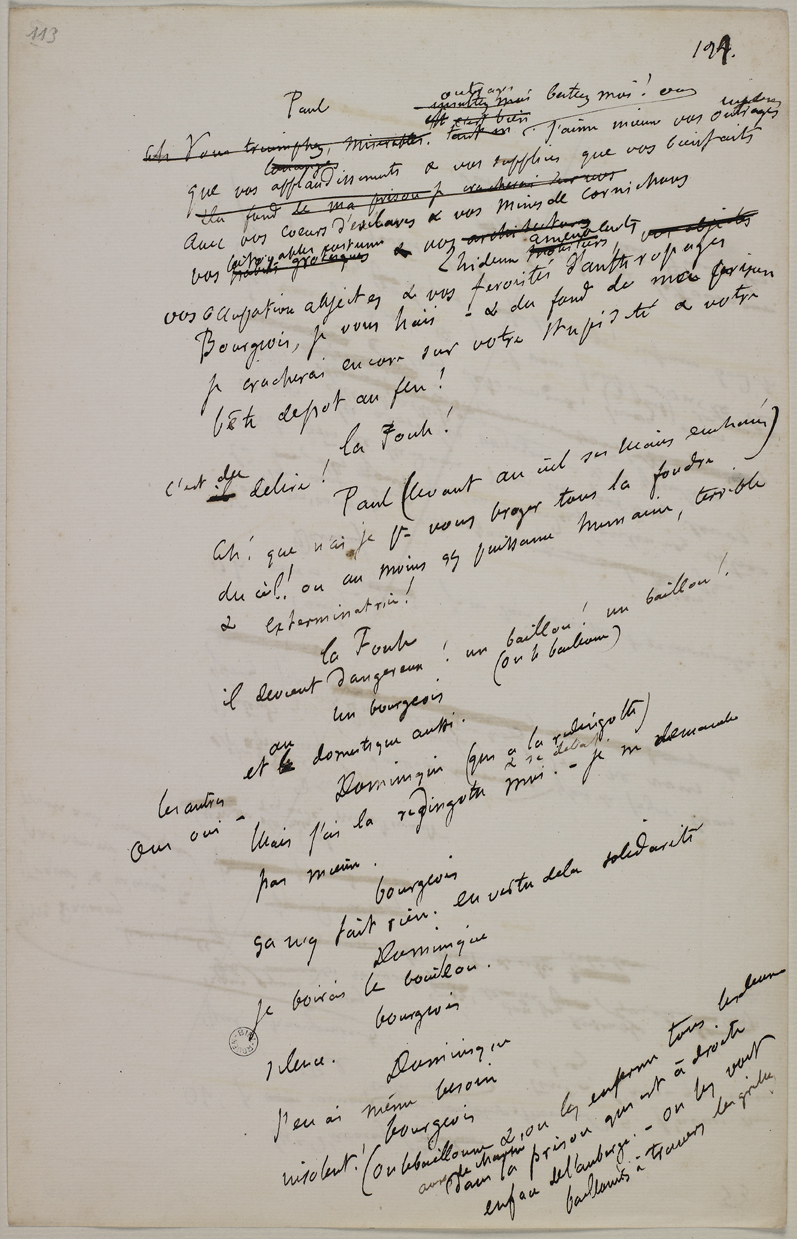 113
194.
Paul
outrages
insultez moi battez moi! vous
et c'est bien
Ah Vous triomphez, misérables. tant mieux j'aime mieux vos outrages
louanges
que vos applaudissements & vos supplices que vos bienfaits
Du fond de ma prison je cracherai sur vos
Avec vos coeurs d'esclaves & vos mines de cornichons
costumes
vos habits grotesques & vos architectures
hideux mobiliers ameublements vos abjects
vos occupations abjectes & vos férocités d'anthropophages
Bourgeois, je vous hais - & du fond de ma prison
je cracherai encore sur votre stupidité & votre
bête depot au feu!
la Foule!
c'est du delire!
Paul (levant au ciel ses mains enchainées)
Ah! que n'ai-je pr vous broyer tous la foudre
du ciel! ou au moins qq puissance humaine, terrible
& exterminatrice!
la Foule
il devient dangereux! un baillon! un baillon!
(on le baillonne)
un bourgeois
et au domestique aussi.
les autres
oui oui -
Dominique (qui a la redingotte)
& se débat.
Mais j'ai la redingotte moi. - je ne demande
pas mieux.
bourgeois
ça n'y fait rien. en vertu de la solidarité
Dominique
je boirais le bouillon.
bourgeois
silence.
Dominique
j'en ai même besoin
bourgeois
insolent! (on le baillonne & on les enferme tous les deux
dans la prison qui est à droite
en face de l'auberge. - on les voit
baillonnés à travers les grilles